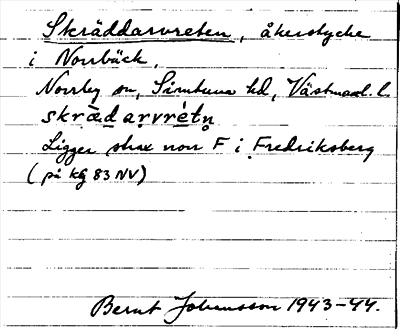 Skräddarvreten, åkerstycke
i Norrbäck.
Norrby sn, Simtuna hd, Västmanl. l.
skrädarvrétn̥
Ligger strax norr F i Fredriksberg
(på kg 83 NV)
Bernt Johansson 1943-44.